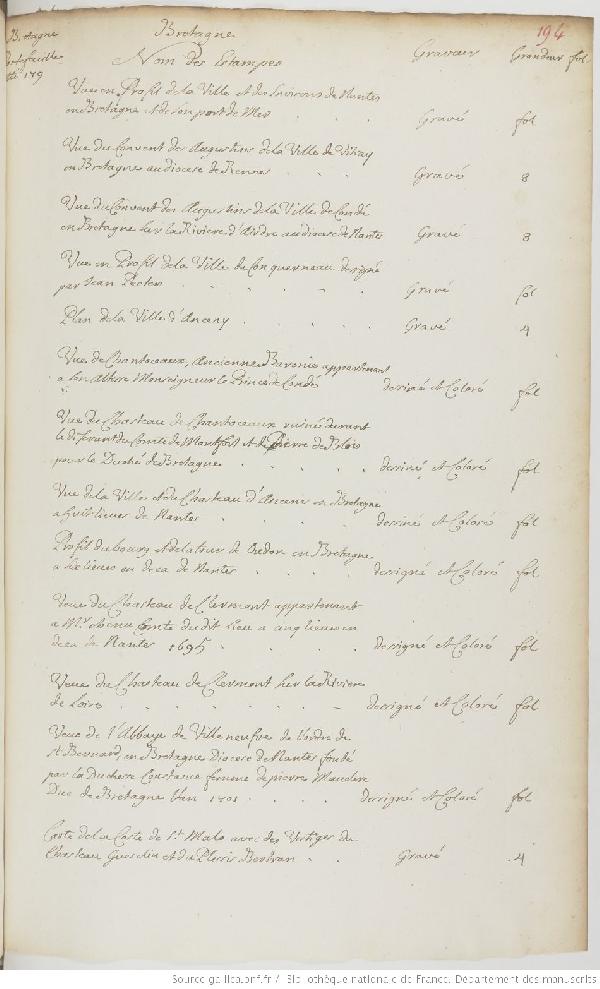 Bretagne
Portefeuille
179
Bretagne
194
Nom des Estampes
Graveur
Grandeur fol
Vue en Profil de la Ville et des Environs de Nantes
en Bretagne et de son port de Mer Gravé fol
Vue du Convent des Augustins de la Ville de Vitray
en Bretagne au diocese de Rennes Gravé 8
Vue du Convent des Augustins de la Ville de Condé
en Bretagne sur la Riviere d'Ardre au diocese de Nantes Gravé 8
Vue en Profil de la Ville de Conquerneau designé
par Jean Gravé fol
Plan de la Ville d'Anceny Gravé 4
Vue de Chantoceaux, Ancienne Baronie appartenant
a son Altesse Monseigneur le Prince de Condé dessiné et Coloré fol
Vue du Chasteau de Chantoceaux ruiné durant
le diferant du Comte de Montfort et de Pierre de Blois
pour le Duché de Bretagne dessiné et Coloré fol
Vue de la Ville et du Chasteau d'Ancenis en Bretagne
a huit lieues de Nantes dessiné et Coloré fol
Profil du bourg et de la tour de Oudon en Bretagne
a six lieues en deca de Nantes dessigné et Coloré fol
Veue du Chasteau de Clermont appartenant
a Mr. Comte du dit lieu a cinq lieues en
deca de Nantes 1695 dessigné et Coloré fol
Veue du Chasteau de Clermont sur la Riviere
de Loire dessigné et Coloré fol
Veue de l'Abbaye de Ville neufve de l'ordre de
St Bernard, en Bretagne Diocese de Nantes fondé
par la Duchesse Constance femme de pierre Mauclere
Duc de Bretagne l'an 1201 dessigné et Coloré fol
Carte de la Coste de St. Malo avec des Vestiges du
Chasteau Guesclin et du Plessis Bertran Gravé 4
Source gallica.bnf.fr / Bibliothèque nationale de France. Département des manuscrits